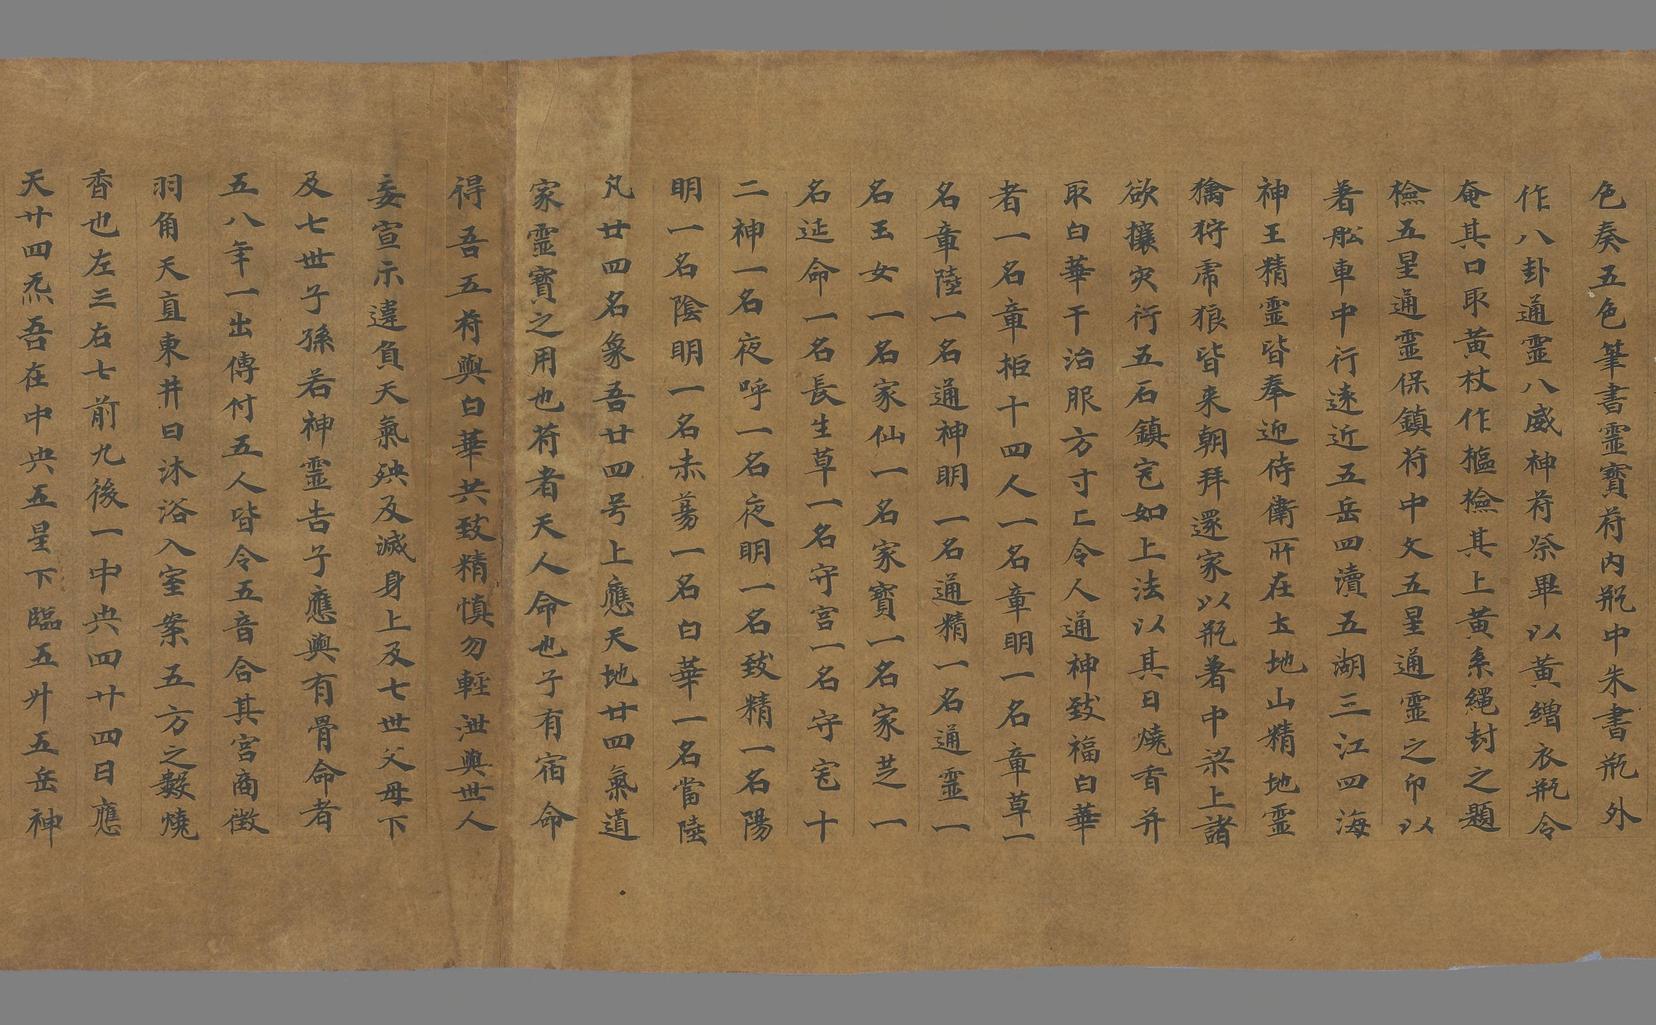 色奏五色筆書靈寶符内瓶中朱書瓶外
作八卦通靈八威神符祭畢以黃繒衣瓶令
奄其口取黃杖作樞檢其上黃系繩封之題
檢五星通靈保鎮符中文五星通靈之印以
著舩車中行遠近五岳四瀆五湖三江四海
神王精靈皆奉迎侍衛所在土地山精地靈
擒狩虎狼皆来朝拜還家以瓶著中梁上諸
欲攘灾行五石鎮宅如上法以其日燒香并
取白華干治服方寸匕令人通神致福白華
者一名章柜十四人一名章明一名章草一
名章陸一名通神明一名通精一名通靈一
名玉女一名家仙一名家寶一名家芝一
名延命一名長生草一名守宫一名守宅十
二神一名夜呼一名夜明一名致精一名陽
明一名陰明一名赤蒡一名白華一名當陸
凡廿四名象吾廿四号上應天地廿四氣道
家靈寶之用也符者天人命也子有宿命
得吾五符與白華共致精慎勿輕泄與世人
妄宣示違負天氣殃及滅身上及七世父母下
及七世子孫若神靈告子應與有骨命者
五八年一出傳付五人皆令五音合其宫商徵
羽角天直東井日沐浴入室案五方之數燒
香也左三右七前九後一中央四廿四日應
天廿四炁吾在中央五星下臨五升五岳神